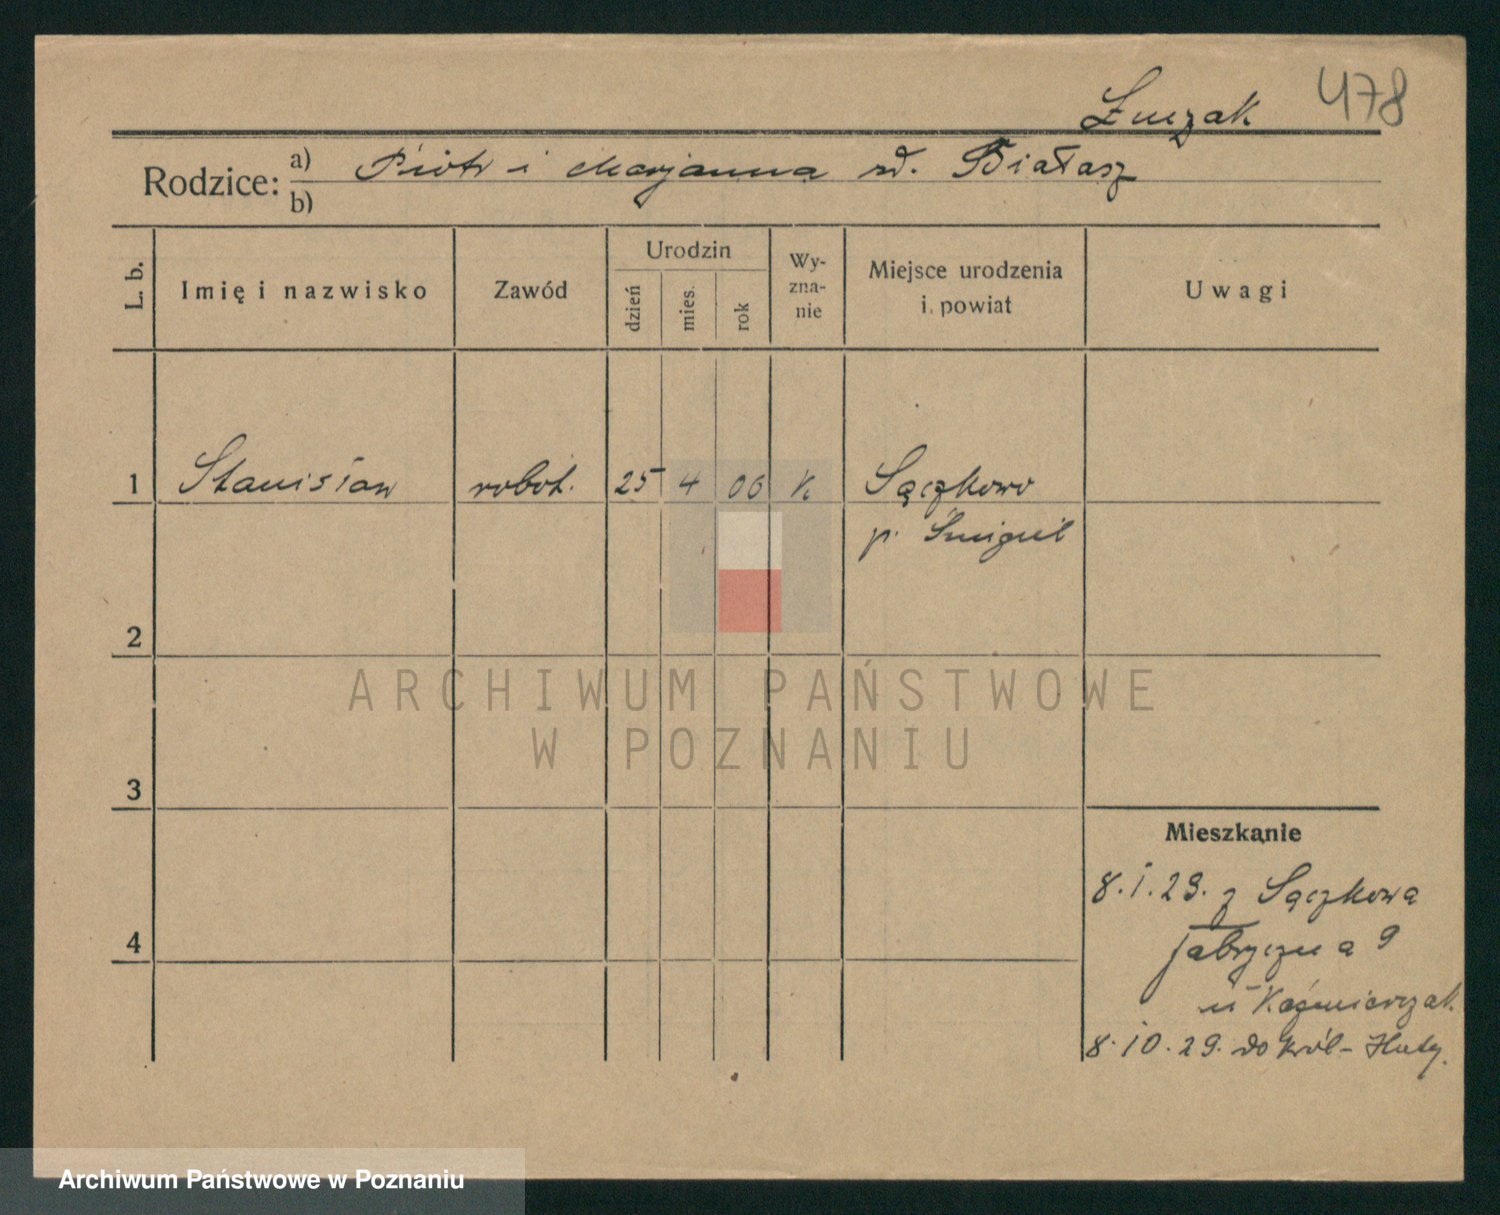 478
Łuczak
Rodzice: a) Piotr i Marjanna zd. Białasz
b)
L. b. Imię i nazwisko Zawód Urodzin dzień mies. rok Wy-zna-nie Miejsce urodzenia i powiat Uwagi
1 Stanisław robot. 25 4 06 K Sączkowo
p. Śmigiel
2
ARCHIWUM PAŃSTWOWE
W POZNANIU
3
Mieszkanie
8.1.29. z Sączkowa
4
Fabryczna 9
u Kaźmierczak.
8.10.29. do Król-Huty.
Archiwum Państwowe w Poznaniu